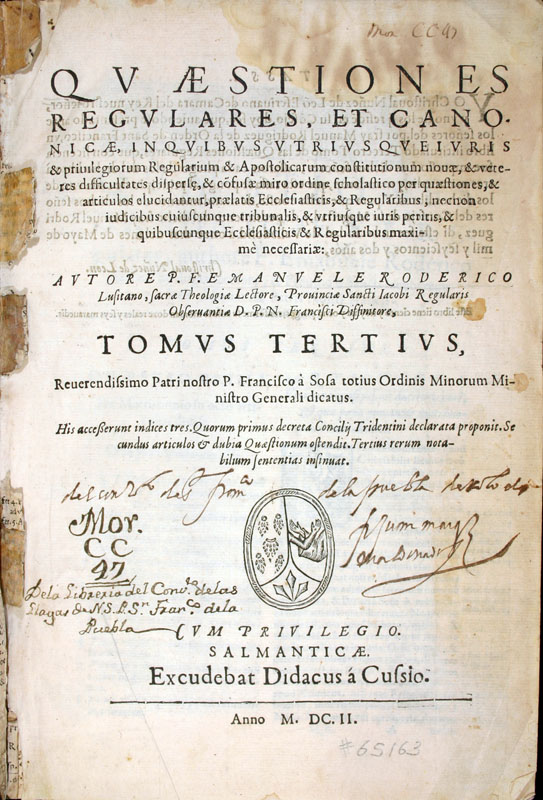 Mor. CC 47
QVÆSTIONES
REGVLARES, ET CANO-
NICÆ, IN QVIBVS VTRIVSQVE IVRIS
& priuilegiorum Regularium & Apostolicarum constitutionum nouæ, & vete-
res difficultates dispersę, & cõfusæ miro ordine scholastico per quæstiones, &
articulos elucidantur, prælatis Ecclesiasticis, & Regularibus, necnon
iudicibus cuiuscunque tribunalis, & vtriusque iuris peritis, &
quibuscunque Ecclesiasticis & Regularibus maxi-
mè necessariæ:
AVTORE P. F. EMANVELE RODERICO
Lusitano, sacræ Theologiæ Lectore, Prouinciæ Sancti Iacobi Regularis
Obseruantiæ D. P. N. Francisci Diffinitore,
TOMVS TERTIVS,
Reuerendissimo Patri nostro P. Francisco à Sosa totius Ordinis Minorum Mi-
nistro Generali dicatus.
His accesserunt indices tres. Quorum primus decreta Concilij Tridentini declarata proponit. Se
cundus articulos & dubia Quæstionum ostendit. Tertius rerum nota-
bilium sententias insinuat.
de la puebla
Mor.
CC
47
De la Libreria del Conv.to de las
Llagas de N. S. P. Sn. Fran.co de la
Puebla
CVM PRIVILEGIO.
SALMANTICÆ.
Excudebat Didacus á Cussio.
Anno M. DC. II.
#65163